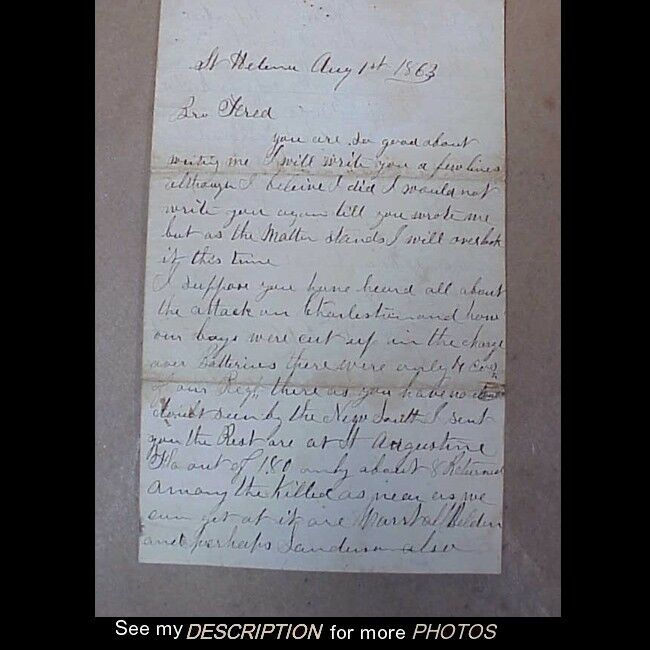 St Helena Aug 1st 1863
Bro Fred
you are so good about
writing me I will write you a few lines
although I beleive I did I would not
write you again till you wrote me
but as the Matter stands I will overlook
it this time
I suppose you have heard all about
the attack on Charleston and how
our boys were cut up in the charge
over Batteries there were only 4 Cos
of our Regt there as you have no
doubt seen by the New South I sent
you the Rest are at St Augustine
Fla out of 180 only about 8 Returned
Among the Killed as near as we
can get at it are Marshal
and perhaps Sanderson also
See my DESCRIPTION for more PHOTOS